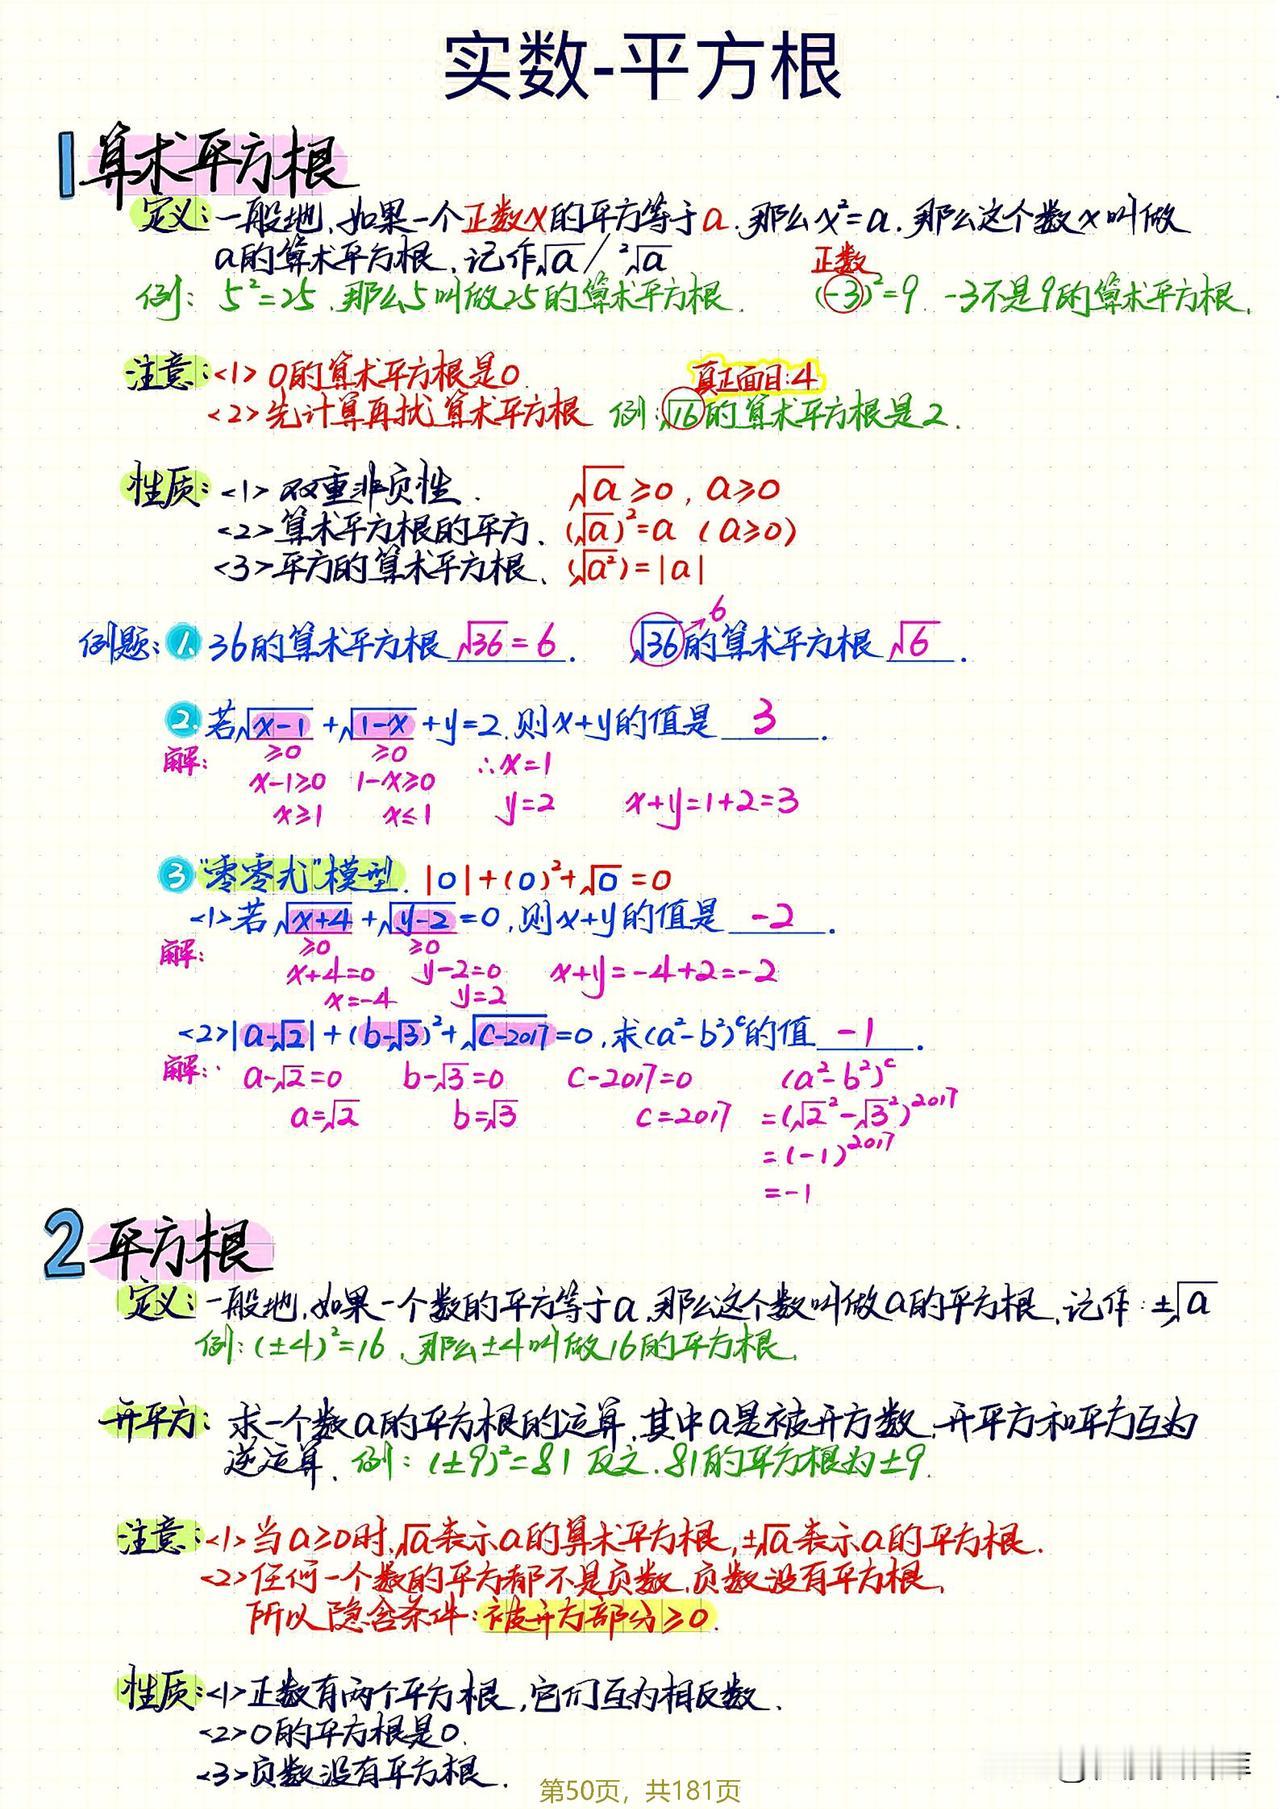 实数-平方根
1 算术平方根
定义：一般地，如果一个正数x的平方等于a，那么x²=a，那么这个数x叫做
a的算术平方根，记作√a / ²√a
正数
例：5²=25，那么5叫做25的算术平方根. (-3)²=9. -3不是9的算术平方根.
注意：<1> 0的算术平方根是0. 真正面目：4
<2> 先计算再找算术平方根 例：√16的算术平方根是2.
性质：<1> 双重非负性. √a≥0，a≥0
<2> 算术平方根的平方. (√a)²=a (a≥0)
<3> 平方的算术平方根. (√a²)=|a|
6
例题：1. 36的算术平方根 √36=6. √36的算术平方根 √6.
2. 若√x-1+√1-x+y=2，则x+y的值是 3.
解： ≥0 ≥0 ∴x=1
x-1≥0 1-x≥0
x≥1 x≤1 y=2 x+y=1+2=3
3 “零零尤”模型. |0|+(0)²+√0=0
<1>若√x+4+√y-2=0，则x+y的值是 -2.
解： ≥0 ≥0
x+4=0 y-2=0 x+y=-4+2=-2
x=-4 y=2
<2>|a-√2|+(b-√3)²+√c-2017=0，求(a²-b²)ᶜ的值 -1.
解： a-√2=0 b-√3=0 c-2017=0 (a²-b²)ᶜ
a=√2 b=√3 c=2017 =(√2²-√3²)²⁰¹⁷
=(-1)²⁰¹⁷
=-1
2 平方根
定义：一般地，如果一个数的平方等于a，那么这个数叫做a的平方根，记作：±√a
例：(±4)²=16，那么±4叫做16的平方根.
开平方：求一个数a的平方根的运算，其中a是被开方数，开平方和平方互为
逆运算. 例：(±9)²=81 反之，81的平方根为±9.
注意：<1>当a≥0时，√a表示a的算术平方根，±√a表示a的平方根.
<2>任何一个数的平方都不是负数，负数没有平方根，
所以隐含条件：被开方部分≥0.
性质：<1>正数有两个平方根，它们互为相反数.
<2>0的平方根是0.
<3>负数没有平方根.
第50页，共181页